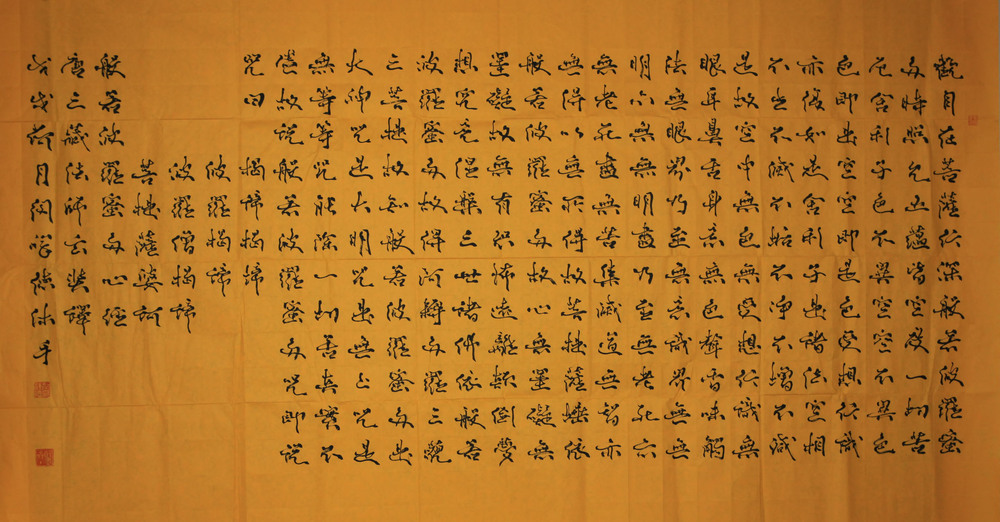 觀自在菩薩行深般若波羅蜜
多時照見五蘊皆空度一切苦
厄舍利子色不異空空不異色
色即是空空即是色受想行識
亦復如是舍利子是諸法空相
不生不滅不垢不淨不增不減
是故空中無色無受想行識無
眼耳鼻舌身意無色聲香味觸
法無眼界乃至無意識界無無
明亦無無明盡乃至無老死亦
無老死盡無苦集滅道無智亦
無得以無所得故菩提薩埵依
般若波羅蜜多故心無罣礙無
罣礙故無有恐怖遠離顛倒夢
想究竟涅槃三世諸佛依般若
波羅蜜多故得阿耨多羅三藐
三菩提故知般若波羅蜜多是
大神咒是大明咒是無上咒是
無等等咒能除一切苦真實不
虛故說般若波羅蜜多咒即說
咒曰 揭諦揭諦
波羅揭諦
波羅僧揭諦
菩提薩婆訶
般若波羅蜜多心經
唐三藏法師玄奘譯
荷月